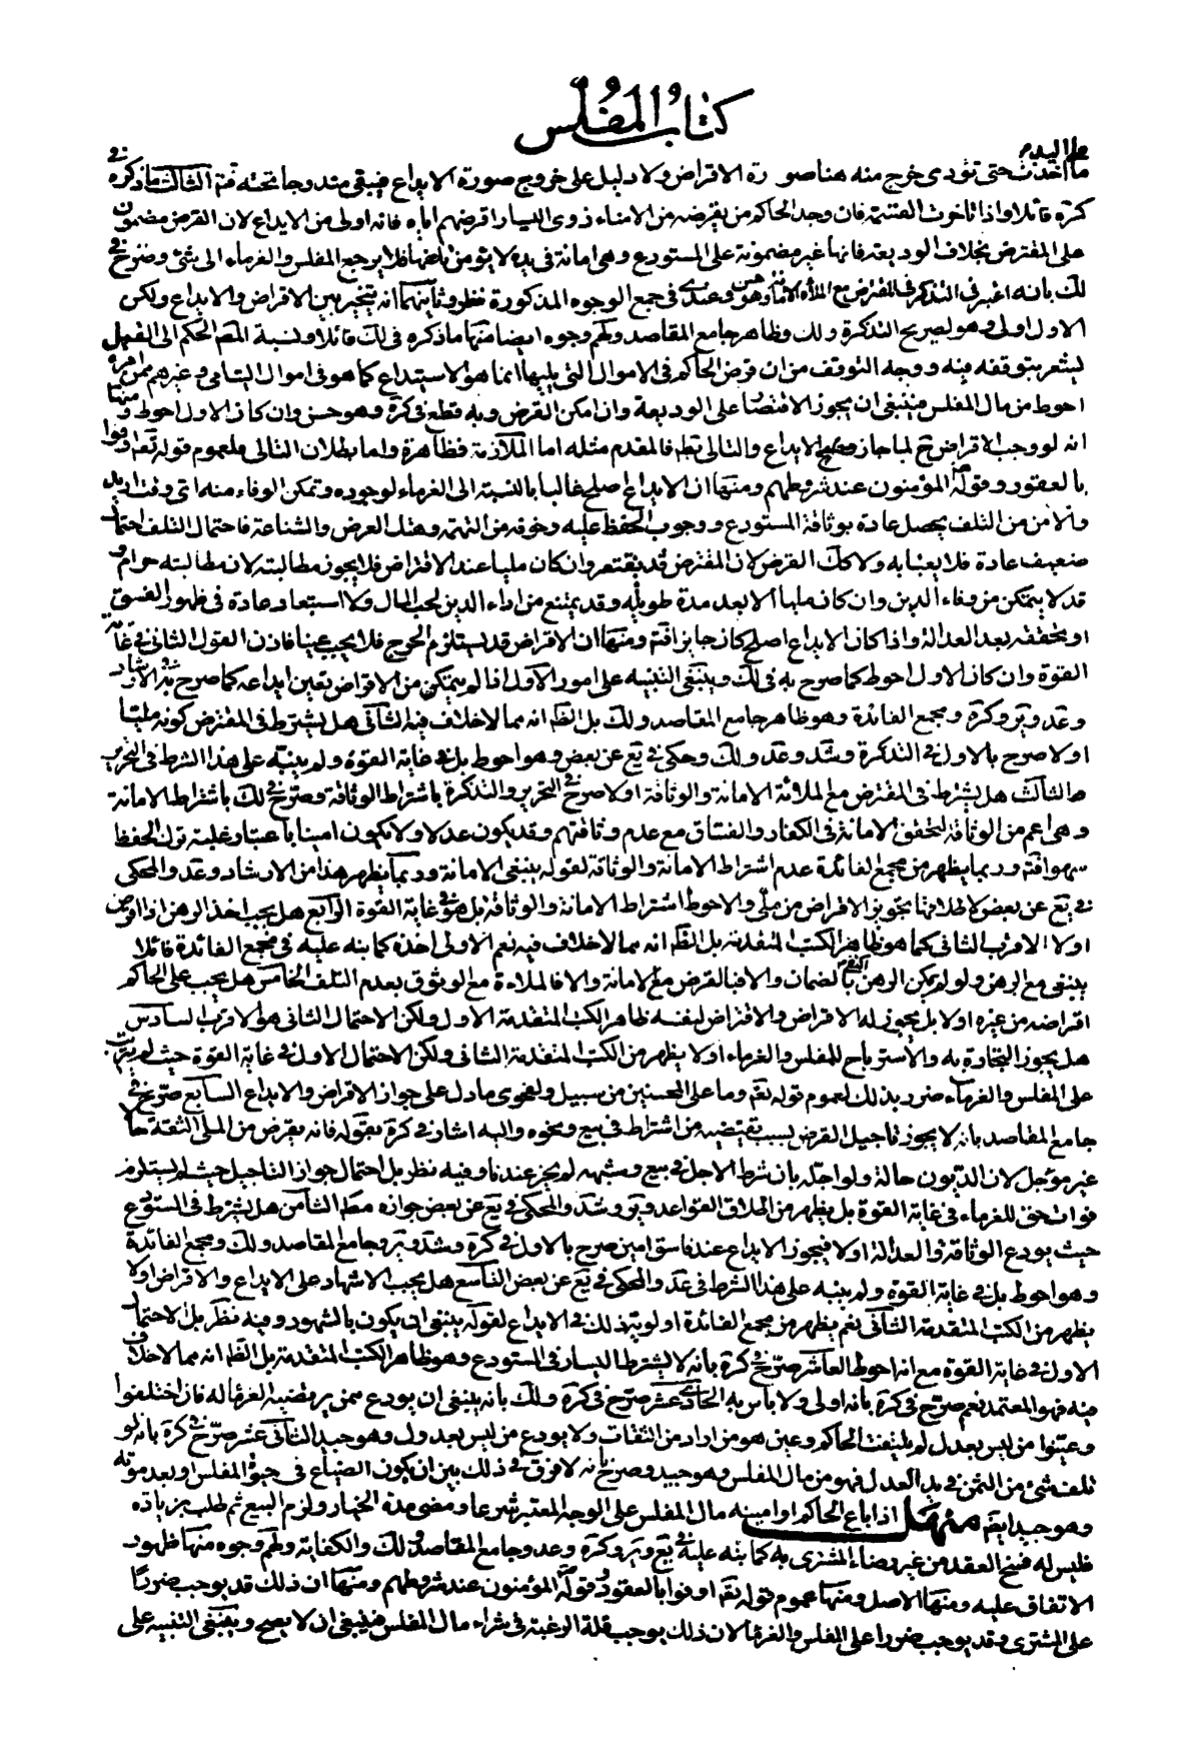 كتاب المفلس
على اليد م
ما اخذت حتى تؤدى خرج منه هنا صورة الاقراض ولا دليل على خروج صورة الايداع فيبقى مندرجا تحته ثم الثالث ما ذكره في
كرة قائلا واذا تاخرت القسمة فان وجد الحاكم من يقرضه من الامناء ذوى اليسار اقرضهم اياه فانه اولى من الايداع لان القرض مضمون
على المقترض بخلاف الوديعة فانها غير مضمونة على المستودع وهى امانة فى يده لا يؤمن تلفها فلا يرجع المفلس والغرماء الى شئ وصرح في
لك بانه اعتبر فى التذكرة فى المقترض مع الملاءة الامانة وهو حسن وعندى فى جميع الوجوه المذكورة نظر وثانيهما انه يتخير بين الاقراض والايداع ولكن
الاول اولى وهو لصريح التذكرة ولك وظاهر جامع المقاصد ولهم وجوه ايضا منها ما ذكره فى لك قائلا ونسبة المصر الحكم الى القيل
يشعر بتوقفه فيه ووجه التوقف من ان قرض الحاكم فى الاموال التى يليها انما هو الاستيداع كما هو فى اموال اليتامى وغيرهم ومن امره
احوط من مال المفلس فينبغى ان يجوز الاقتصار على الوديعة وان امكن القرض وبه قطع فى كرة وهو حسن وان كان الاول احوط ومنها
انه لو وجب الاقراض ح لما جاز الايداع والتالى بط فالمقدم مثله اما الملازمة فظاهرة واما بطلان التالى فلعموم قوله تعا اوفوا
بالعقود وقوله المؤمنون عند شروطهم ومنها ان الايداع اصلح غالبا بالنسبة الى الغرماء لوجوده وتمكن الوفاء منه اى وقت اريد
والامن من التلف يحصل عادة بوثاقة المستودع ووجوب الحفظ عليه وخوفه من التهمة وهتك العرض والشناعة فاحتمال التلف احتمال
ضعيف عادة فلا يعبا به ولا كك القرض لان المقترض قد يفتقر وان كان مليا عند الاقتراض فلا يجوز مطالبته لان مطالبته حرام و
قد لا يتمكن من وفاء الدين وان كان مليا الا بعد مدة طويلة وقد يمتنع من اداء الدين لحب المال ولا استبعاد عادة فى ظهور الفسق
او تحققه بعد العدالة واذا كان الايداع اصلح كان جايزا فته ومنها ان الاقراض قد يستلزم الحرج فلا يجب عينا فاذن القول الثانى في غاية
القوة وان كان الاول احوط كما صرح به فى لك وينبغى التنبيه على امور الاول اذا لم يتمكن من الاقراض يتعين ايداعه كما صرح به الارشاد
وعد ويرو كرة ومجمع الفائدة وهو ظاهر جامع المقاصد ولك بل الظ انه مما لا خلاف فيه الثانى هل يشترط فى المقترض كونه مليا
او لا صرح بالاول في التذكرة وشد وعد ولك وحكى في يع عن بعض وهو احوط بل في غاية القوة ولم ينبه على هذا الشرط فى التحرير
الثالث هل يشترط فى المقترض مع الملائة الامانة والوثاقة او لا صرح في التحرير والتذكرة باشتراط الوثاقة وصرح في لك باشتراط الامانة
وهى اعم من الوثاقة لتحقق الامانة فى الكفار والفساق مع عدم وثاقتهم وقد يكون عدلا ولا يكون امينا باعتبار غلبة ترك الحفظ
سهوا فته وربما يظهر من مجمع الفائدة عدم اشتراط الامانة والوثاقة لقوله ينبغى الامانة وربما يظهر هذا من الارشاد وعد والمحكى
في يع عن بعض لاطلاقها تجويز الاقراض من ملى والاحوط اشتراط الامانة والوثاقة بل هو في غاية القوة الرابع هل يجب اخذ الرهن اذا اقرض
او لا الاقرب الثانى كما هو ظاهر الكتب المتقدمة بل الظ انه مما لا خلاف فيه نعم الاولى اخذه كما نبه عليه فى مجمع الفائدة قائلا
ينبغى مع الرهن ولو لم يكن الرهن فالقرض بالضمان والا فبالقرض مع الامانة والا فالملاءة مع الوثوق بعدم التلف الخامس هل يجب على الحاكم
اقراضه من غيره او لا بل يجوز له الاقراض والاقتراض لنفسه ظاهر الكتب المتقدمة الاول ولكن الاحتمال الثانى هو الاقرب السادس
هل يجوز التجارة به والاسترباح للمفلس والغرماء او لا يظهر من الكتب المتقدمة الثانى ولكن الاحتمال الاول في غاية القوة حيث لم يترتب
على المفلس والغرماء ضرر بذلك لعموم قوله تعم وما على المحسنين من سبيل ولفحوى ما دل على جواز الاقراض والايداع السابع صرح في
جامع المقاصد بانه لا يجوز تاجيل القرض لسبب يقتضيه من اشتراط فى بيع ونحوه واليه اشار فى كرة بقوله فانه يقرض من الملى الثقة حالا
غير مؤجل لان الديون حالة ولو اجله بان شرط الاجل في بيع وشبهه لم يجز عندنا وفيه نظر بل احتمال جواز التاجيل حيث لم يستلزم
فوات حق للغرماء فى غاية القوة بل يظهر من اطلاق القواعد وير وشد والمحكى في يع عن بعض جوازه مطلقا الثامن هل يشترط فى المستودع
حيث يودع الوثاقة والعدالة او لا فيجوز الايداع عند فاسق امين صرح بالاول في كرة وشد وير وجامع المقاصد ولك ومجمع الفائدة
وهو احوط بل في غاية القوة ولم ينبه على هذا الشرط فى عد والمحكى في يع عن بعض التاسع هل يجب الاشهاد على الايداع والاقراض او لا
يظهر من الكتب المتقدمة الثانى نعم يظهر من مجمع الفائدة اولوية ذلك في الايداع لقوله ينبغى ان يكون بالشهود وفيه نظر بل الاحتمال
الاول في غاية القوة مع انه احوط العاشر صرح في كرة بانه لا يشترط اليسار فى المستودع وهو ظاهر الكتب المتقدمة بل الظ انه مما لا خلاف
فيه فهو المعتمد نعم صرح فى كرة بانه اولى ولا باس به الحادى عشر صرح فى كرة ولك بانه ينبغى ان يودع ممن يرتضيه الغرماء له فان اختلفوا
وعينوا من ليس بعدل لم يلتفت الحاكم وعين هو من اراد من الثقات ولا يودع من ليس بعدول وهو جيد الثانى عشر صرح في كرة بانه لو
تلف شئ من الثمن في يد العدل فهو من مال المفلس وهو جيد وصرح بانه لا فرق في ذلك بين ان يكون الضياع فى حيوة المفلس او بعد موته
وهو جيد ايضا منهل اذا باع الحاكم او امينه مال المفلس على الوجه المعتبر شرعا ومضى مدة الخيار ولزم البيع ثم طلب بزيادة
فليس له فسخ العقد من غير رضاء المشترى به كما نبه عليه في يع وير وكرة وعد وجامع المقاصد ولك والكفاية ولهم وجوه منها ظهور
الاتفاق عليه ومنها الاصل ومنها عموم قوله تعم اوفوا بالعقود وقوله المؤمنون عند شروطهم ومنها ان ذلك قد يوجب ضررا
على المشترى وقد يوجب ضررا على المفلس والغرماء لان ذلك يوجب قلة الرغبة فى شراء مال المفلس فينبغى ان لا يصح وينبغى التنبيه على